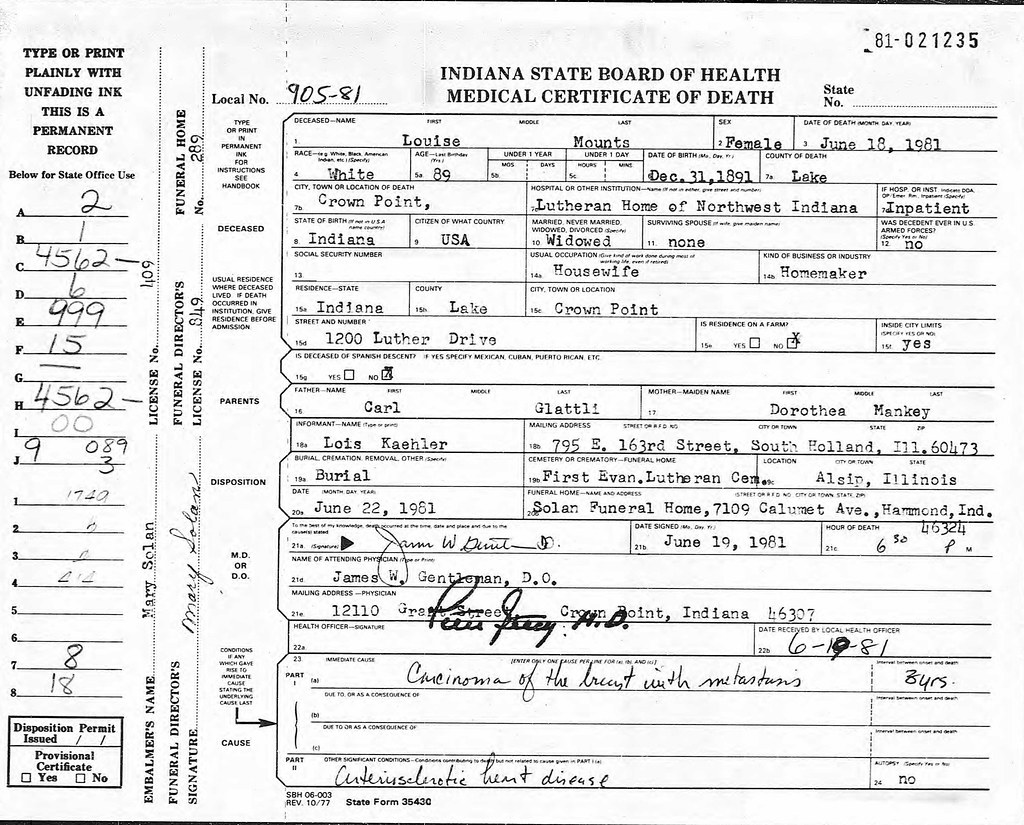 81-021235
TYPE OR PRINT
PLAINLY WITH
UNFADING INK
THIS IS A
PERMANENT
RECORD
Below for State Office Use
A 2
B 1
C 4562—
D 6
E 999
F 15
G —
H 4562—
I 00
J 9 089
3
1 1749
2
3
4
5
6
7 8
8 18
Disposition Permit
Issued / /
Provisional
Certificate
☐ Yes ☐ No
EMBALMER'S NAME. Mary Solan LICENSE No. 409
FUNERAL DIRECTOR'S SIGNATURE. Mary Solan FUNERAL DIRECTOR'S LICENSE No. 849
FUNERAL HOME No. 289
INDIANA STATE BOARD OF HEALTH
MEDICAL CERTIFICATE OF DEATH
Local No. 905-81
State No.
TYPE
OR PRINT
IN
PERMANENT
INK
FOR
INSTRUCTIONS
SEE
HANDBOOK
DECEASED
USUAL RESIDENCE
WHERE DECEASED
LIVED IF DEATH
OCCURRED IN
INSTITUTION, GIVE
RESIDENCE BEFORE
ADMISSION
PARENTS
DISPOSITION
M.D.
OR
D.O.
CONDITIONS
IF ANY
WHICH GAVE
RISE TO
IMMEDIATE
CAUSE
STATING THE
UNDERLYING
CAUSE LAST
CAUSE
DECEASED—NAME FIRST MIDDLE LAST SEX DATE OF DEATH (MONTH, DAY, YEAR)
1. Louise Mounts 2 Female 3 June 18, 1981
RACE—(e.g. White, Black, American Indian, etc.) (Specify) AGE—Last Birthday (Yrs.) UNDER 1 YEAR UNDER 1 DAY DATE OF BIRTH (Mo., Day, Yr.) COUNTY OF DEATH
MOS DAYS HOURS MINS
4 White 5a 89 5b. 5c 6 Dec. 31,1891 7a Lake
CITY, TOWN OR LOCATION OF DEATH HOSPITAL OR OTHER INSTITUTION—Name (If not in either, give street and number) IF HOSP. OR INST. Indicate DOA, OP/Emer. Rm., Inpatient (Specify)
7b Crown Point, 7c Lutheran Home of Northwest Indiana 7d Inpatient
STATE OF BIRTH (If not in U.S.A. name country) CITIZEN OF WHAT COUNTRY MARRIED, NEVER MARRIED, WIDOWED, DIVORCED (Specify) SURVIVING SPOUSE (If wife, give maiden name) WAS DECEDENT EVER IN U.S. ARMED FORCES? (Specify Yes or No)
8 Indiana 9 USA 10 Widowed 11. none 12. no
SOCIAL SECURITY NUMBER USUAL OCCUPATION (Give kind of work done during most of working life, even if retired) KIND OF BUSINESS OR INDUSTRY
13. 14a Housewife 14b Homemaker
RESIDENCE—STATE COUNTY CITY, TOWN OR LOCATION
15a Indiana 15b Lake 15c Crown Point
STREET AND NUMBER IS RESIDENCE ON A FARM? INSIDE CITY LIMITS (SPECIFY YES OR NO)
15d 1200 Luther Drive 15e YES ☐ NO ☒ 15f. yes
IS DECEASED OF SPANISH DESCENT? IF YES SPECIFY MEXICAN, CUBAN, PUERTO RICAN, ETC.
15g YES ☐ NO ☒
FATHER—NAME FIRST MIDDLE LAST MOTHER—MAIDEN NAME FIRST MIDDLE LAST
16. Carl Glattli 17. Dorothea Mankey
INFORMANT—NAME (Type or print) MAILING ADDRESS STREET OR R.F.D. NO. CITY OR TOWN STATE ZIP
18a Lois Kaehler 18b 795 E. 163rd Street, South Holland, Ill.60473
BURIAL, CREMATION, REMOVAL, OTHER (Specify) CEMETERY OR CREMATORY—FUNERAL HOME LOCATION CITY OR TOWN STATE
19a Burial 19b First Evan.Lutheran Cem. 19c Alsip, Illinois
DATE (MONTH, DAY, YEAR) FUNERAL HOME—NAME AND ADDRESS (STREET OR R.F.D. NO. CITY OR TOWN, STATE, ZIP)
20a June 22, 1981 20b Solan Funeral Home,7109 Calumet Ave.,Hammond,Ind.
46324
To the best of my knowledge, death occurred at the time, date and place and due to the cause(s) stated DATE SIGNED (Mo., Day, Yr.) HOUR OF DEATH
21a. (Signature) 21b. June 19, 1981 21c 6 30 P M
NAME OF ATTENDING PHYSICIAN (Type or Print)
21d James W. Gentleman, D.O.
MAILING ADDRESS—PHYSICIAN
21e 12110 Grant Street Crown Point, Indiana 46307
HEALTH OFFICER—SIGNATURE DATE RECEIVED BY LOCAL HEALTH OFFICER
22a 22b 6-19-81
23. IMMEDIATE CAUSE [ENTER ONLY ONE CAUSE PER LINE FOR (a), (b), AND (c)] Interval between onset and death
PART I (a) Carcinoma of the breast with metastasis 3yrs.
DUE TO, OR AS A CONSEQUENCE OF Interval between onset and death
(b)
DUE TO OR AS A CONSEQUENCE OF Interval between onset and death
(c)
PART II OTHER SIGNIFICANT CONDITIONS—Conditions contributing to death but not related to cause given in PART I (a) AUTOPSY (Specify Yes or No)
arteriosclerotic heart disease 24 no
SBH 06-003
REV. 10/77 State Form 35430